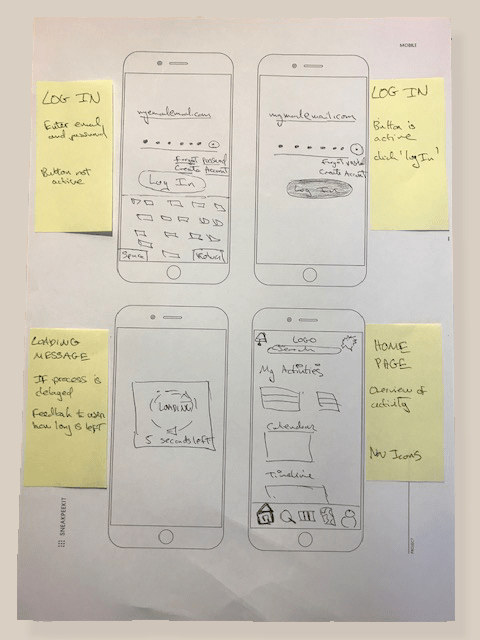 MOBILE
LOG IN
Enter email
and password
Button not
active
myemail@email.com
Forgot password
Create Account
Log In
Space
LOG IN
Button is
active
click 'log In'
Create Account
Log In
LOADING
MESSAGE
IF process is
delayed
Feedback to user
how long is left
LOADING
5 seconds left
LOGO
Search
My Activities
Calendar
Timeline
HOME
PAGE
Overview of
activity
Nav Icons
SNEAKPEEKIT
PROJECT